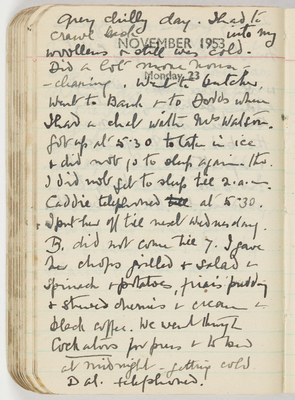 Grey chilly day. I had to
crawl back into my
NOVEMBER 1953
woollens & still was cold.
Did a lot more house-
Monday 23
-cleaning. Went to butcher
Went to Bank & to Dodds where
I had a chat with Mrs Watson.
Got up at 5.30 to take in ice
& did not go to sleep again. tho.
I did not get to sleep till 2. a.m.
Caddie telephoned at 5.30.
I put her off till next Wednesday.
B. did not come till 7. I gave
her chops grilled & salad &
spinach & potatoes, pudding
& stewed cherries & cream &
black coffee. We went through
Cockatoos for press & to bed
at midnight - getting cold.
Dal. telephoned.